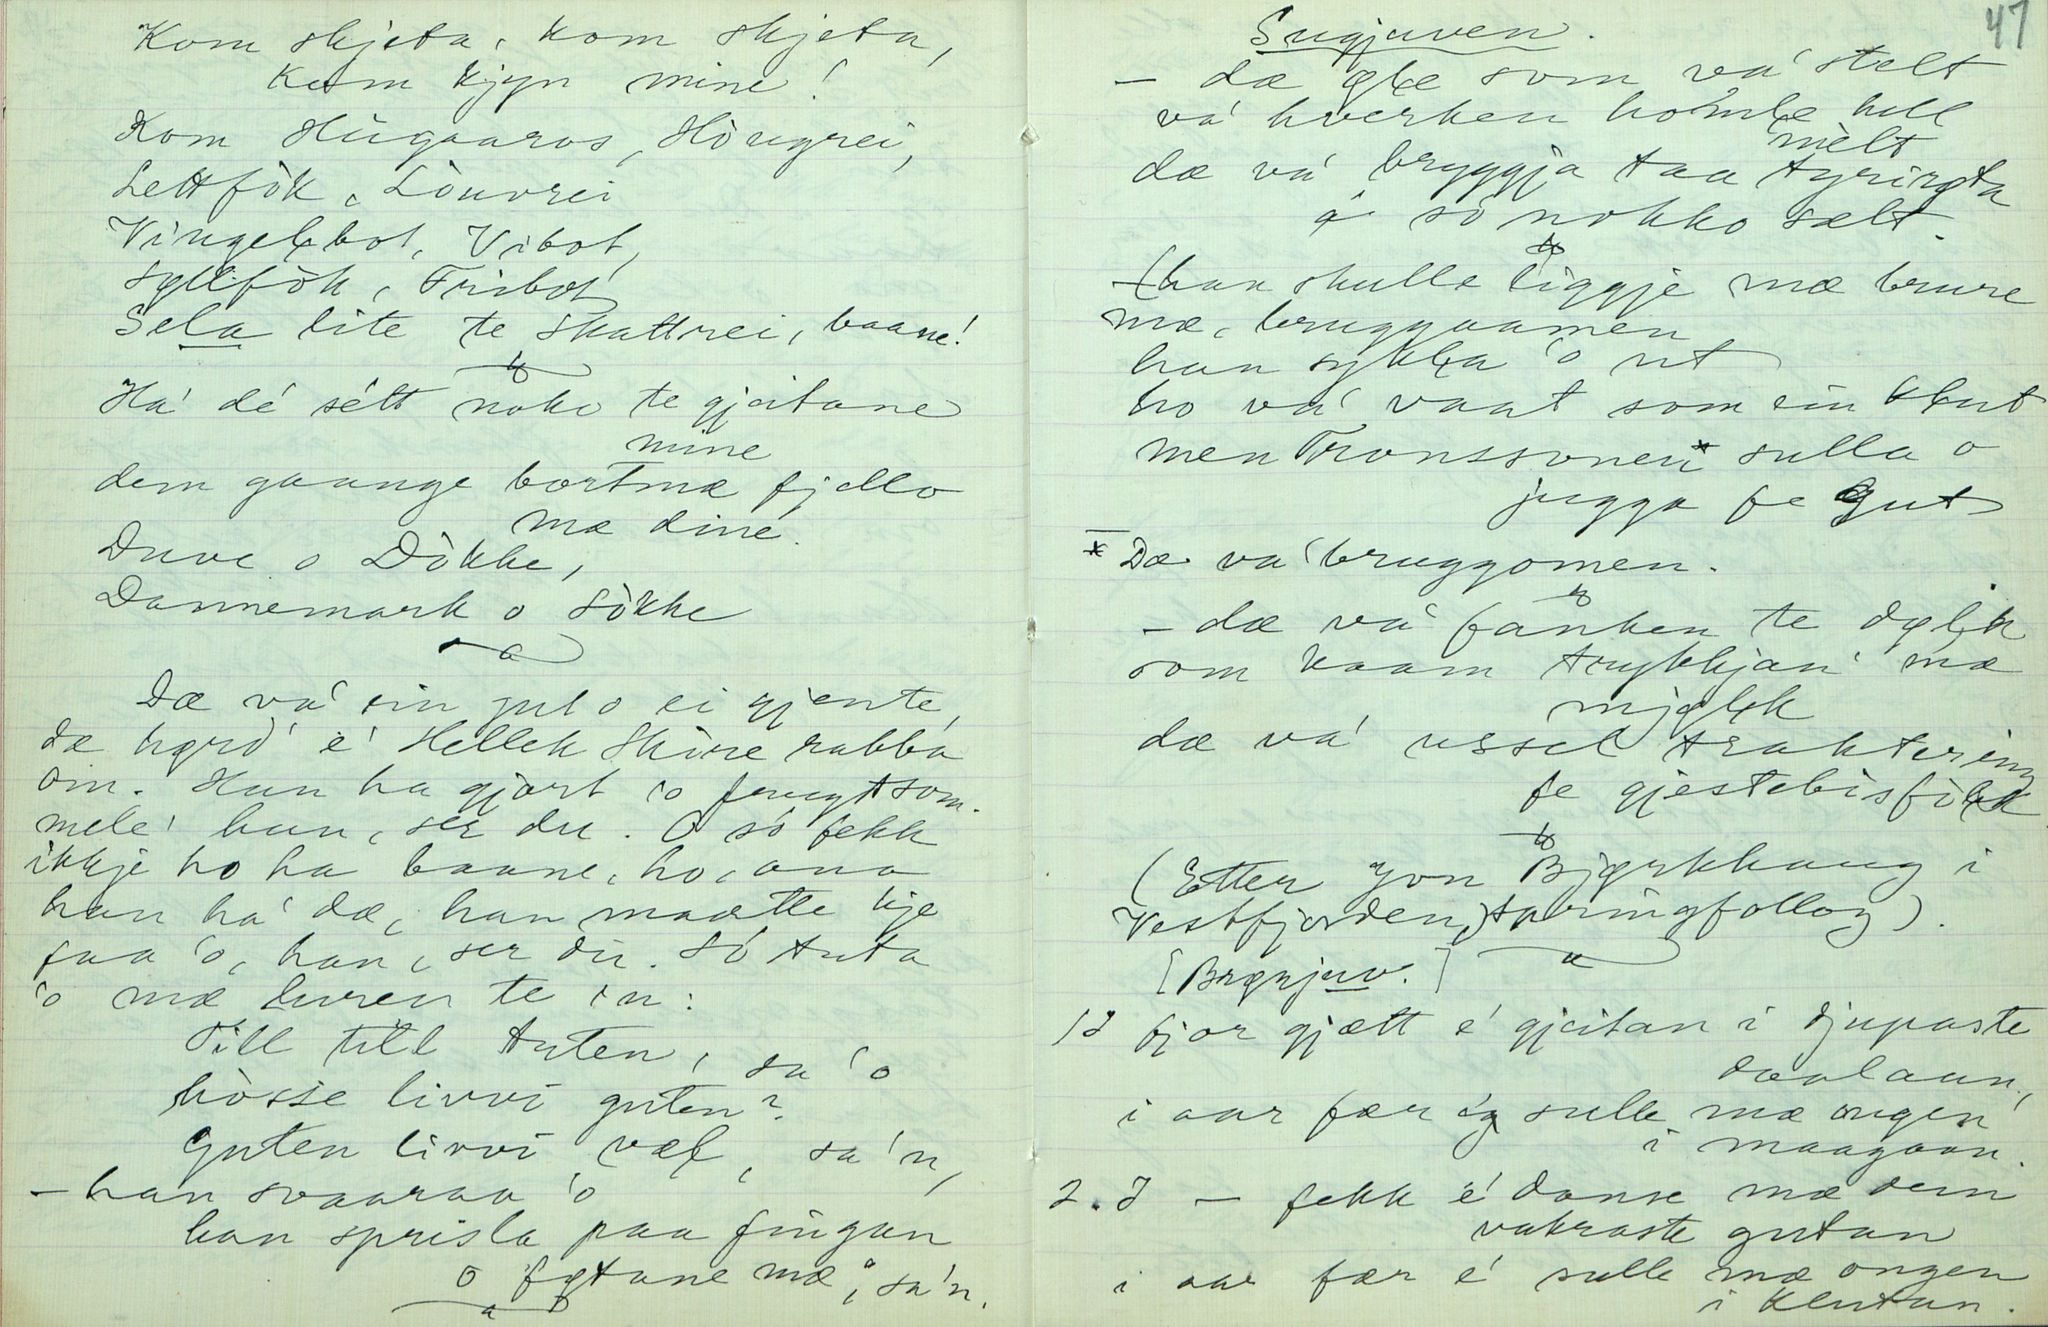 Kom skjeta, kom skjeta,
Kom kjyn mine!
Kom Húgaaros, Hòugrei,
Lettfòk, Lòuvrei
Vingelbot, Vibot,
Syllfòk, Fribot
Sela lite te skattrei, baane!
Há dé sétt noko te gjeitane
mine
dem gaange bortmæ fjello
mæ dine.
Duve o Dòkke,
Dannemark o Sòkke
Dæ vá ein gut o ei gjente,
dæ hørd' é Hellek Skòre rabba
om. Han ha gjort 'o frugtsom-
mele' han, ser du. O só fekk
ikkje ho ha baane, ho, aaa
han há dæ, han maatte kje
faa 'o, han, ser du. Só tuta
'o mæ luren te 'n:
Till till tuten, sa 'o
hòsse livvi guten?
Guten livvi væl, sa 'n,
– han svaaraa 'o
han sprisla paa fingan
o føtane mæ, sa'n.
47
Sugjuven.
– dæ øle som vá stelt
vá hverken homle hell
mèlt
dæ vá bryggja taa tyrirøta
å só nokko sælt.
– (han skulle liggje mæ brure
mæ, bruggaamen
han sykla 'o ut
ho vá vaat som ein klut
men Fronssonen* sulla o
jugga fe gut
* Dæ va bruggomen.
– dæ vá fanken te dølik
som kaam trykkjan' mæ
mjølk
dæ vá ussel traktering
fe gjestebisfòlk
(Etter Jon Bjørkhaug i
Vestfjorden, springfollog).
[Brønjuv.]
1 I fjor gjætt é gjeitan i djupaste
daalaan,
i aar fær ég sulle mæ ongen
i maagaan.
2. I – fekk é danse mæ dein
vakraste gutan
i aar fær é sulle mæ ongen
i Klutan.